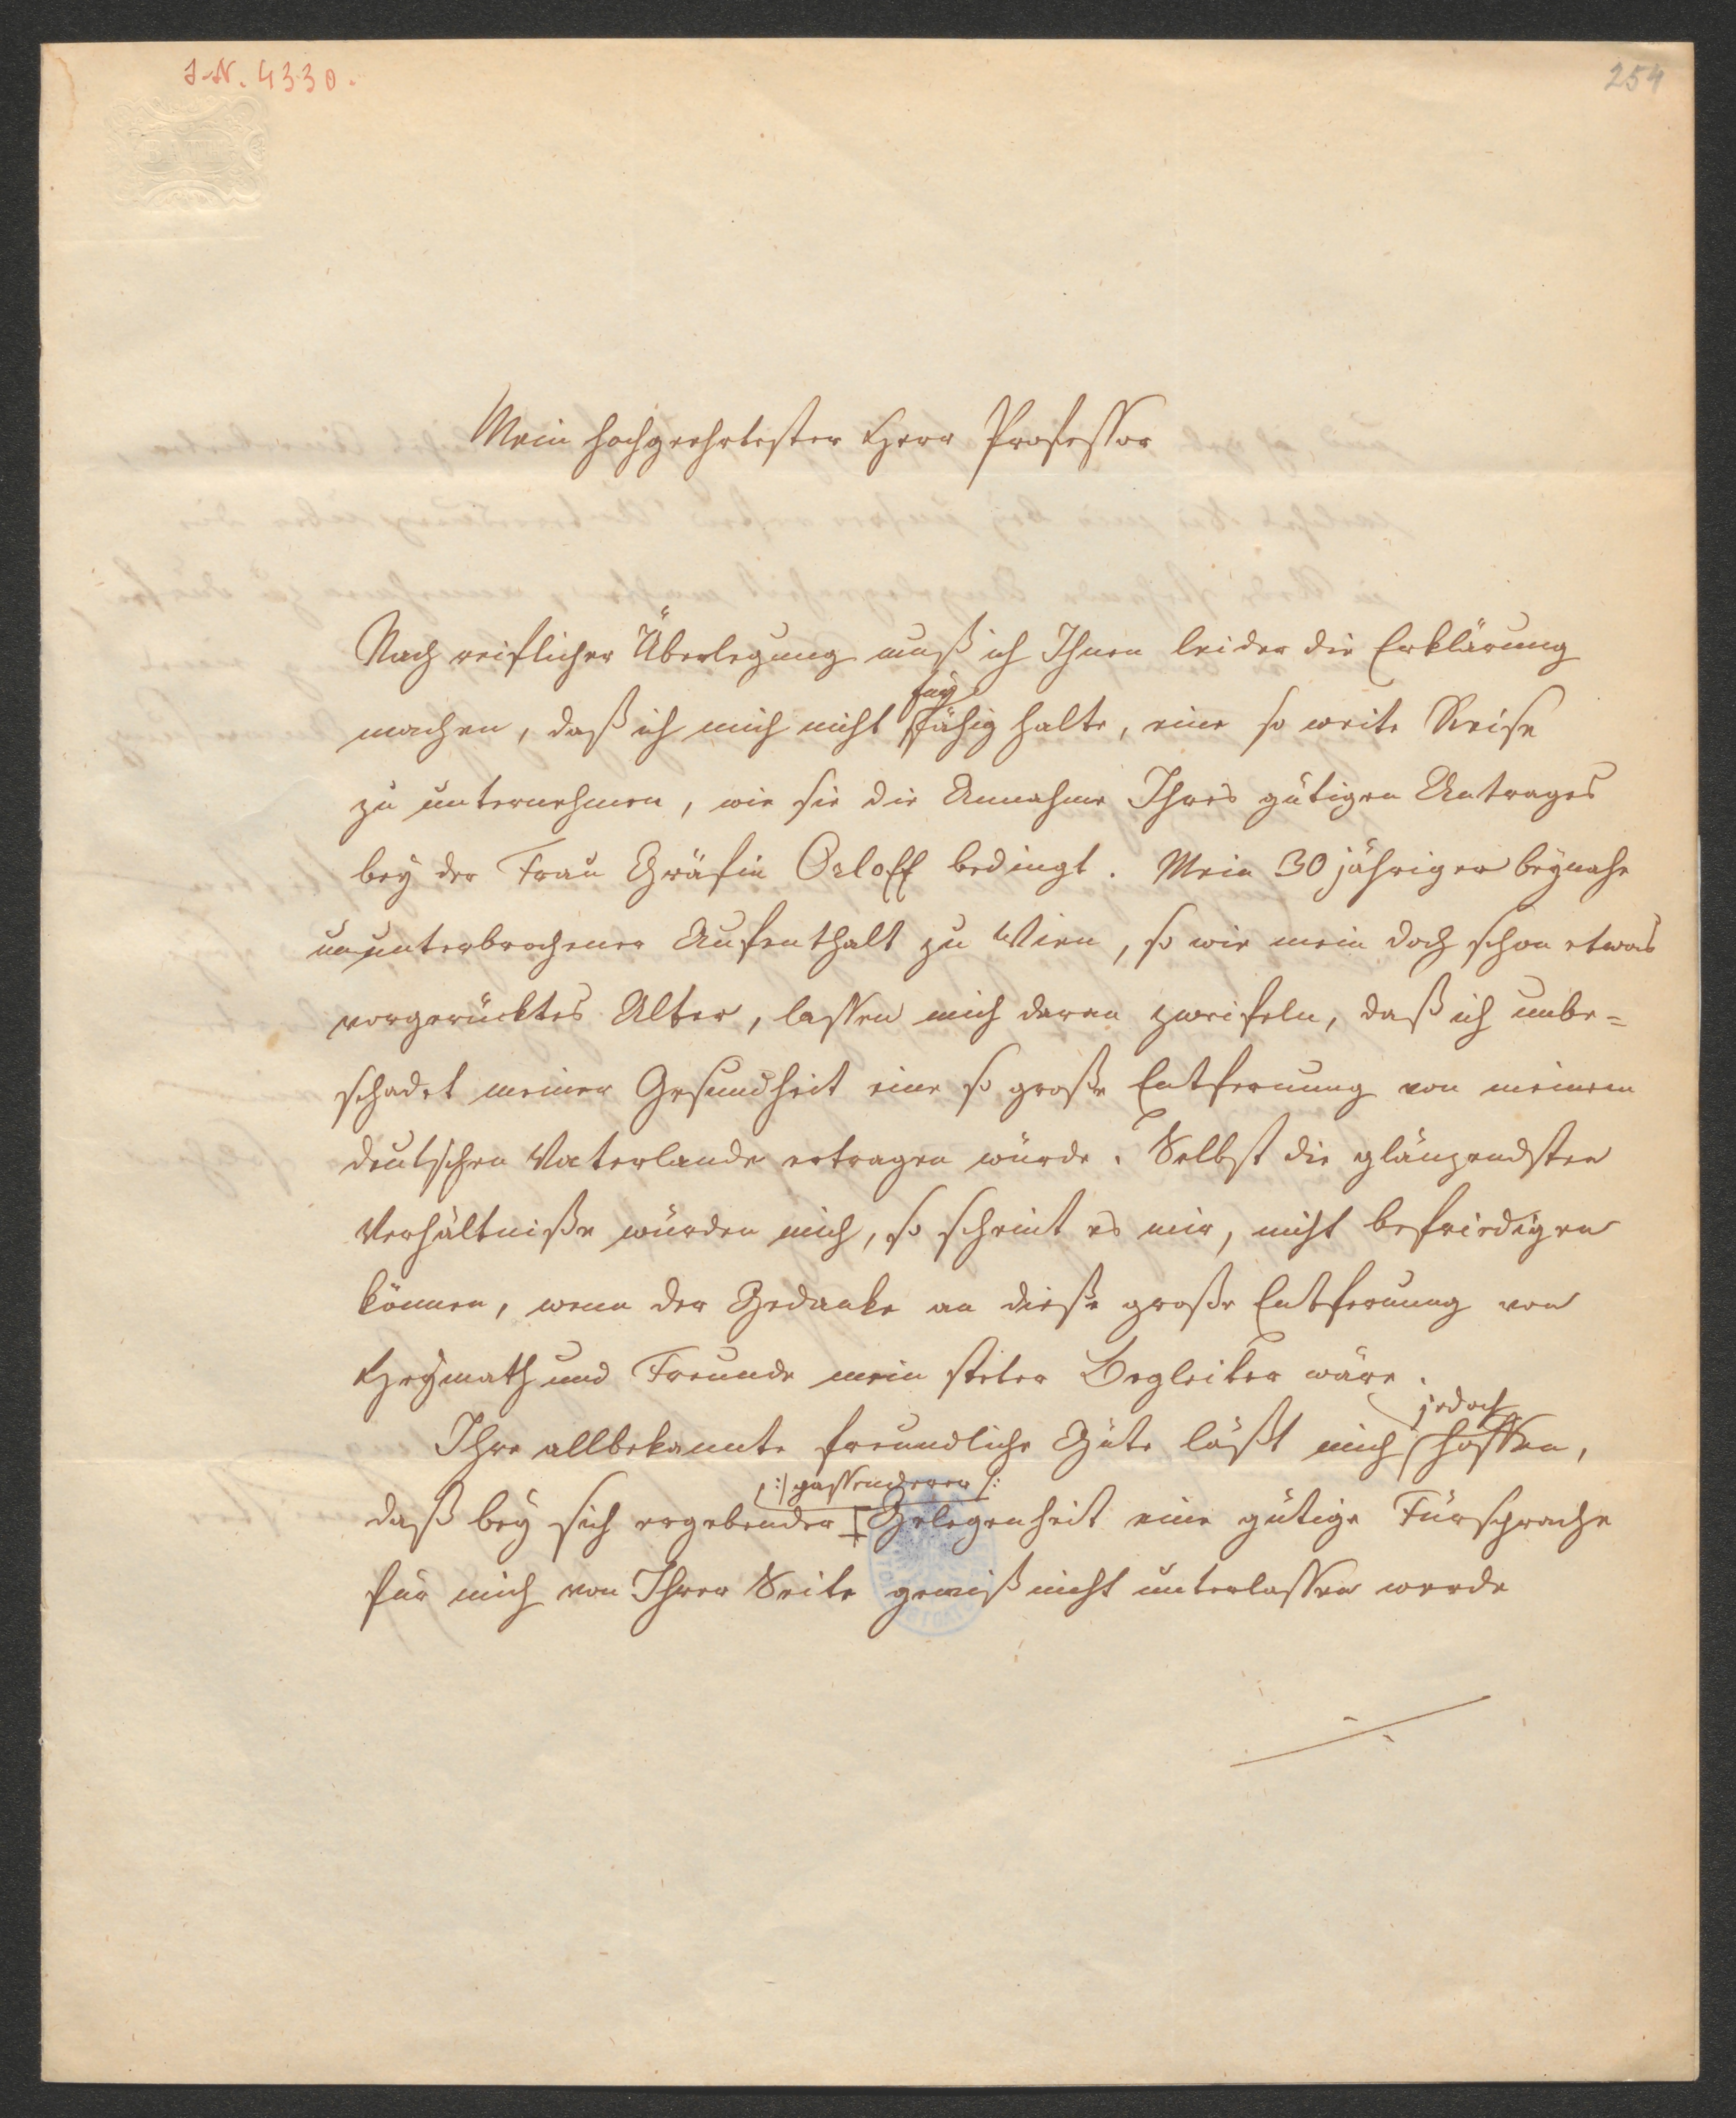 I.N. 4330.
254
Mein hochgeehrtester Herr Professor
Nach reiflicher Überlegung muß ich Ihnen leider die Erklärung
für
machen, daß ich mich nicht fähig halte, eine so weite Reise
zu unternehmen, wie sie die Annahme Ihres gütigen Antrages
bey der Frau Gräfin Orloff bedingt. Mein 30 jähriger beynahe
ununterbrochener Aufenthalt zu Wien, so wie mein doch schon etwas
vorgerücktes Alter, lassen mich daran zweifeln, daß ich unbe=
schadet meiner Gesundheit eine so große Entfernung von meinem
deutschen Vaterlande ertragen würde. Selbst die glänzendsten
Verhältniße würden mich, so scheint es mir, nicht befriedigen
können, wenn der Gedanke an diese große Entfernung von
Heymath und Freunde mein steter Begleiter wäre.
jedoch
Ihre allbekannte freundliche Güte läßt mich hoffen,
:/ passenderer /:
daß bey sich ergebender Gelegenheit eine gütige Fürsprache
für mich von Ihrer Seite gewiß nicht unterlassen werde